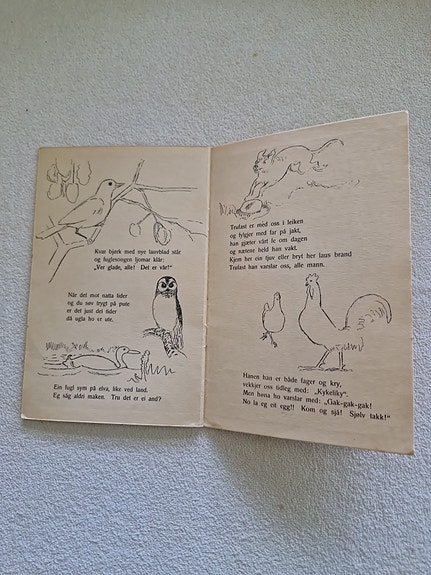 Kvar bjørk med nye lauvblad står
og fuglesongen ljomar klår:
"Ver glade, alle! Det er vår!"
Når det mot natta lider
og du søv trygt på pute
er det just dei tider
då ugla ho er ute.
Ein fugl sym på elva, like ved land.
Eg såg aldri maken. Tru det er ei and?
Trufast er med oss i leiken
og fylgjer med far på jakt,
han gjæter vårt fe om dagen
og nættene held han vakt.
Kjem her ein tjuv eller bryt her laus brand
Trufast han varslar oss, alle mann.
Hanen han er både fager og kry,
vekkjer oss tidleg med: „Kykeliky".
Men høna ho varslar med: „Gak-gak-gak!
No la eg eit egg!! Kom og sjå! Sjølv takk!"